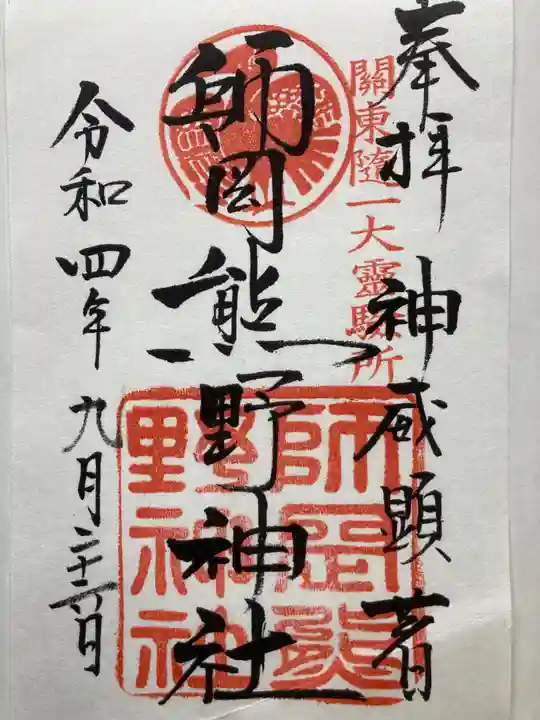 奉拝 神威顕著
關東隨一大靈驗所
師岡熊野神社
師岡熊野神社
令和四年九月二十六日